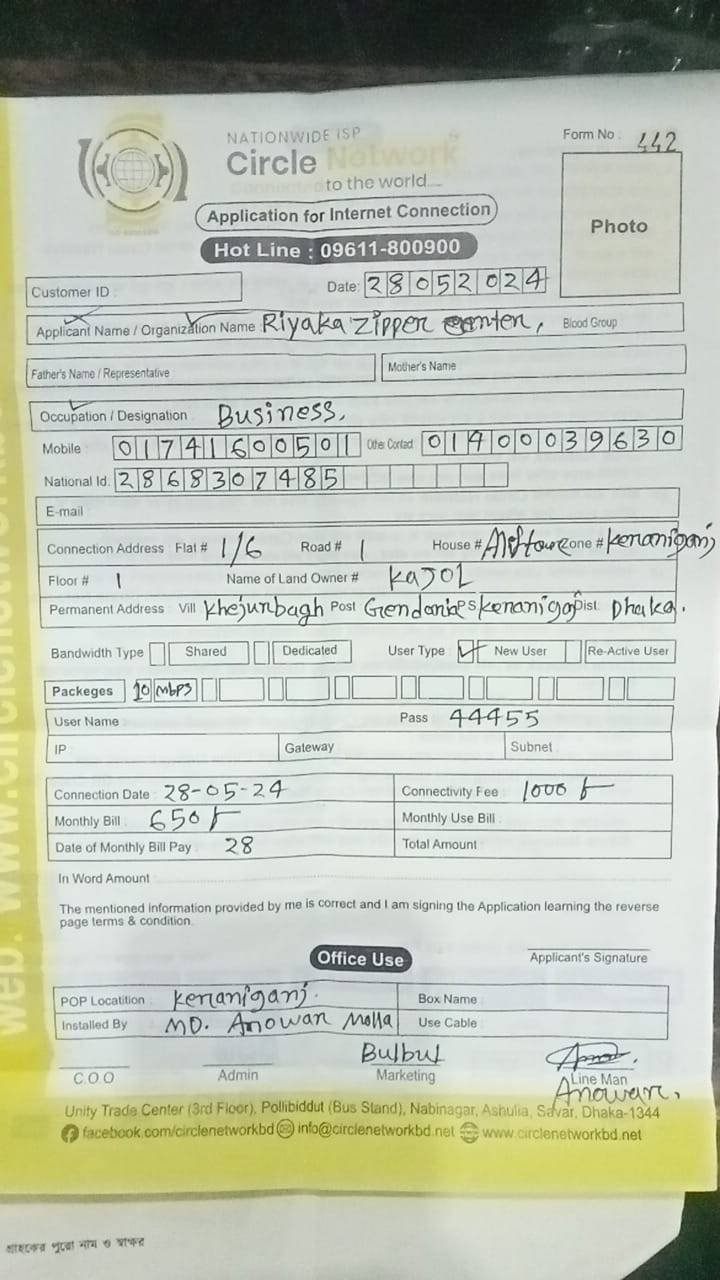 NATIONWIDE ISP
Circle Network
to the world....
Form No : 442
Photo
Application for Internet Connection
Hot Line : 09611-800900
Customer ID :
Date: 28052024
Applicant Name / Organization Name Riyaka Zipper Center, Blood Group
Father's Name / Representative
Mother's Name
Occupation / Designation Business,
Mobile : 01741600501 Other Contact 01400039630
National Id. 2868307485
E-mail
Connection Address Flat # 1/6 Road # 1 House # Zone # Kenaniganj
Floor # 1 Name of Land Owner # KAJOL
Permanent Address Vill Khejunbagh Post Gendania PS Kenanigaj Dist: Dhaka.
Bandwidth Type Shared Dedicated User Type New User Re-Active User
Packeges 10 Mbps
User Name Pass : 44455
IP Gateway Subnet
Connection Date : 28-05-24 Connectivity Fee : 1000 ৳
Monthly Bill : 650 ৳ Monthly Use Bill :
Date of Monthly Bill Pay : 28 Total Amount
In Word Amount
The mentioned information provided by me is correct and I am signing the Application learning the reverse
page terms & condition.
Office Use
Applicant's Signature
POP Locatition : Kenaniganj. Box Name
Installed By MD. Anowan Molla Use Cable
Bulbul
C.O.O Admin Marketing Line Man
Anowar,
Unity Trade Center (3rd Floor), Pollibiddut (Bus Stand), Nabinagar, Ashulia, Savar, Dhaka-1344
facebook.com/circlenetworkbd info@circlenetworkbd.net www.circlenetworkbd.net
গ্রাহকের পুরো নাম ও স্বাক্ষর